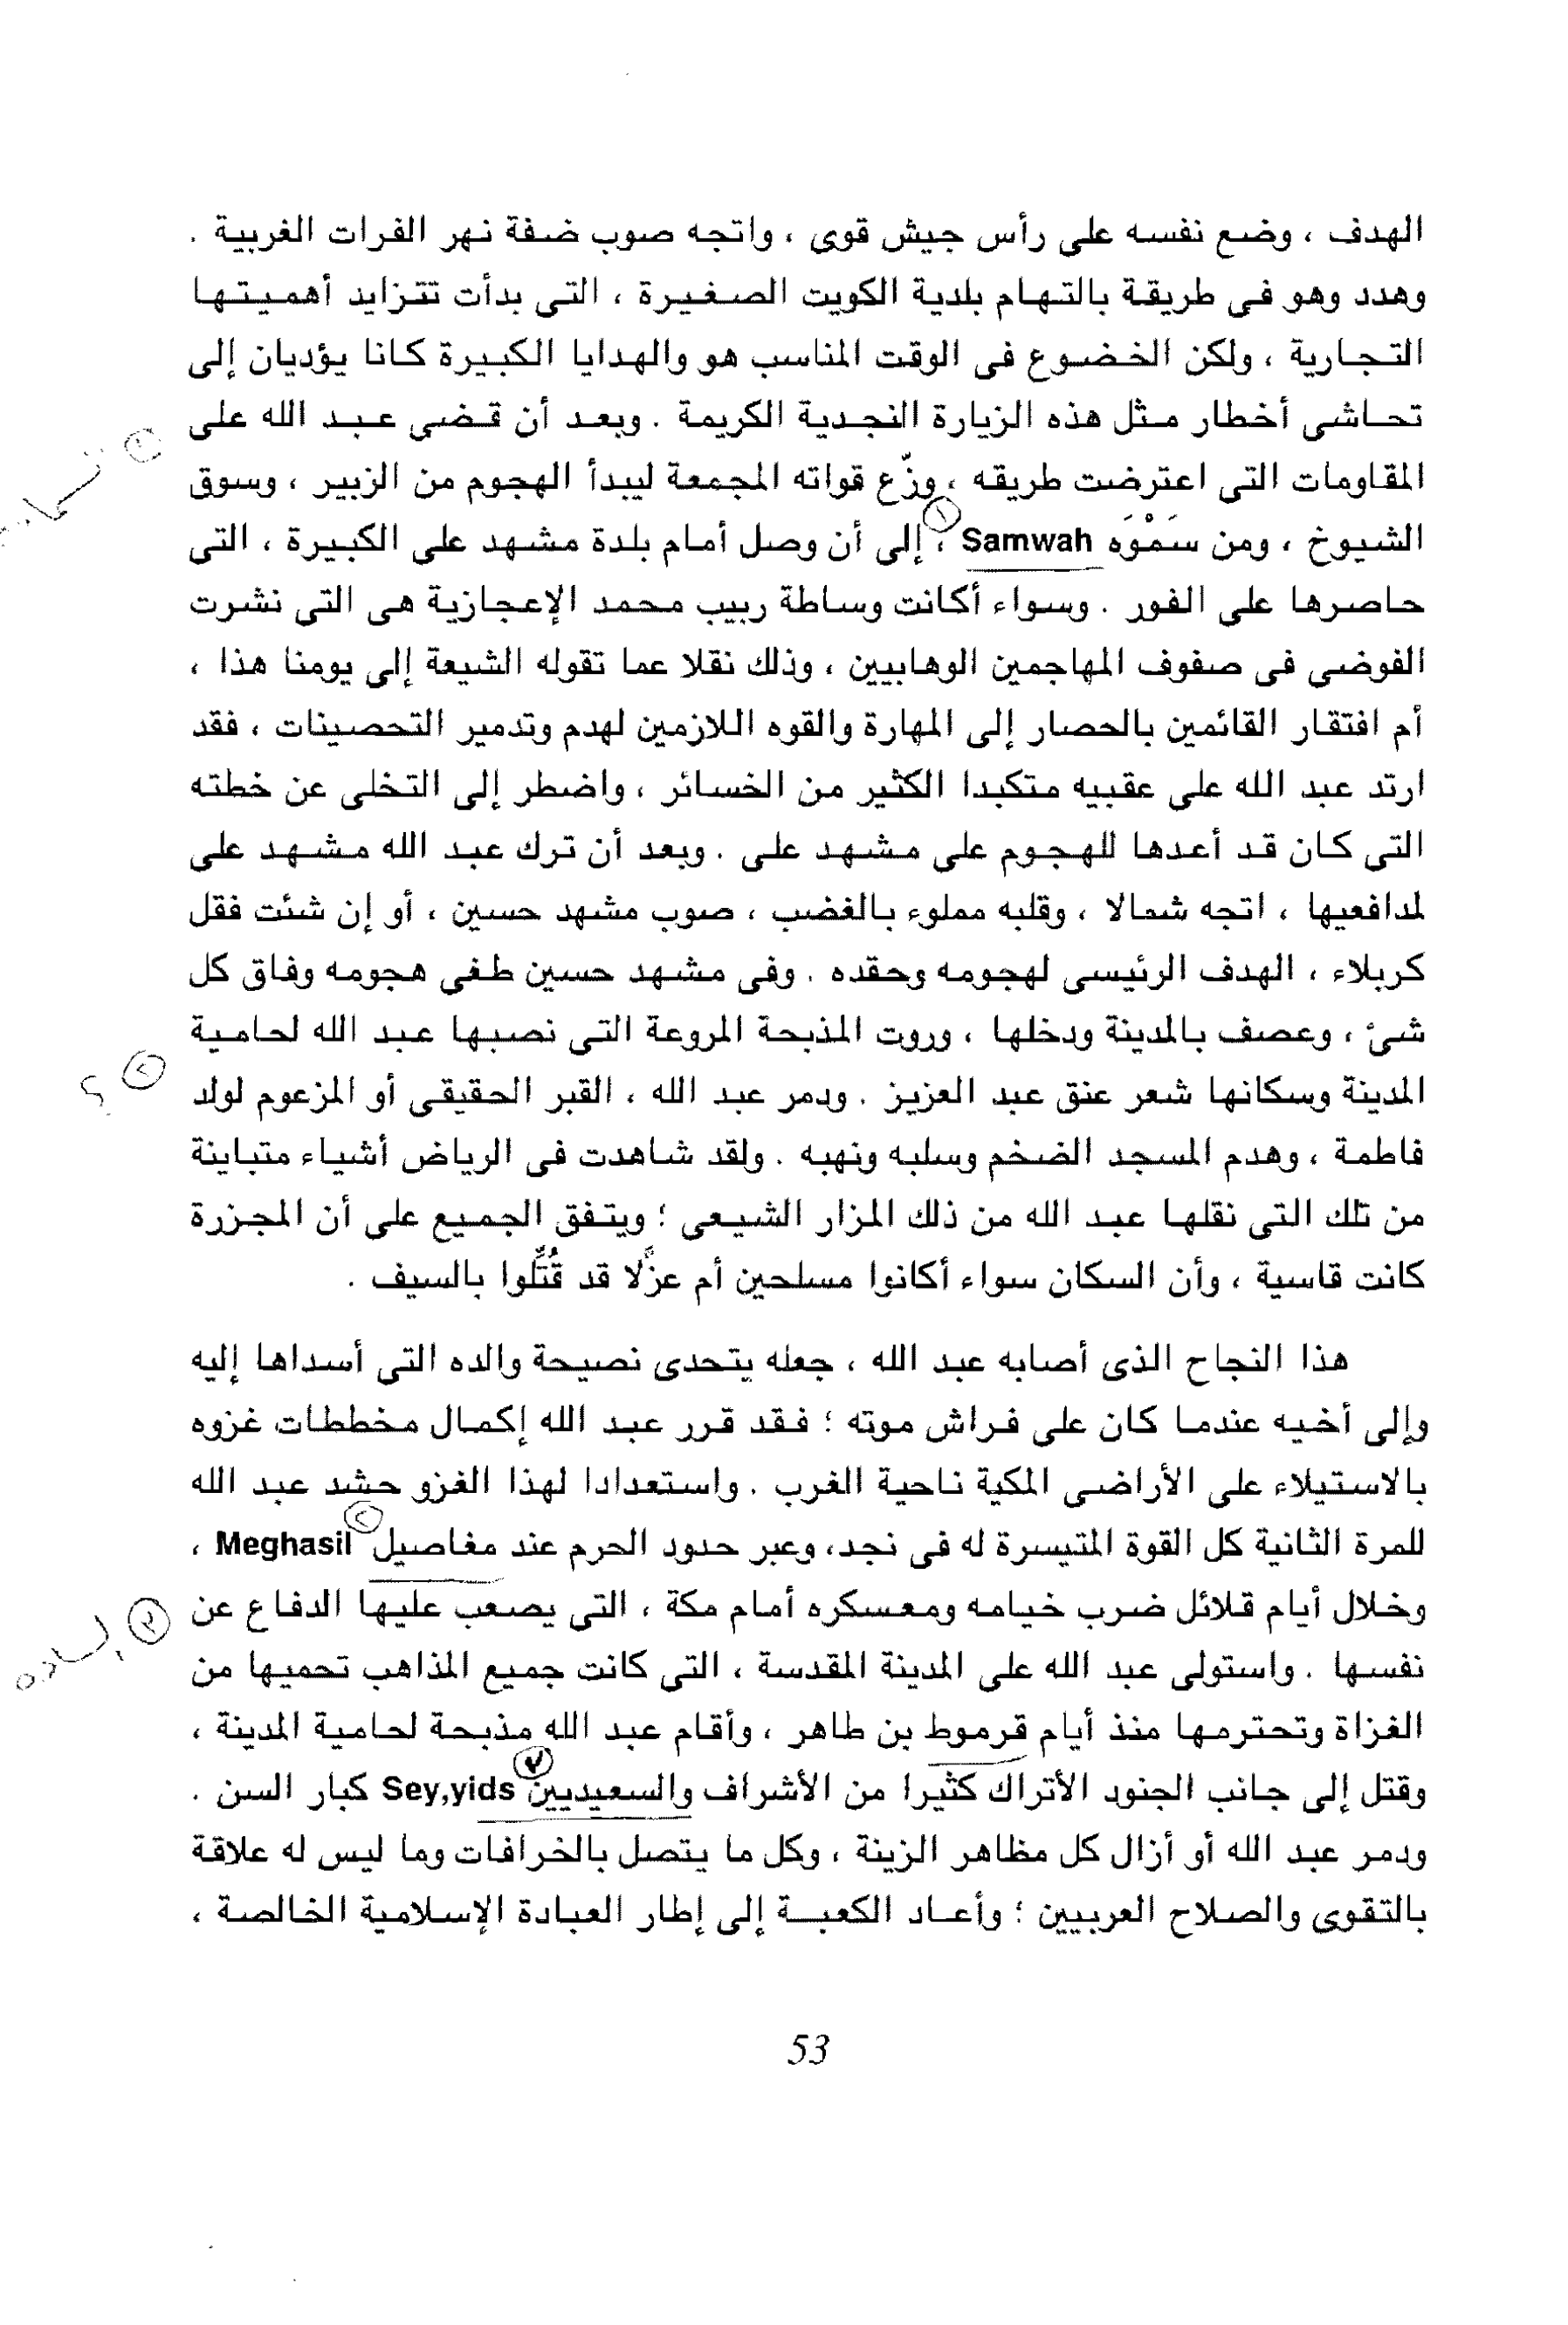 الهدف ، وضع نفسه على رأس جيش قوى ، واتجه صوب ضفة نهر الفرات الغربية .
وهدد وهو فى طريقة بالتهام بلدية الكويت الصغيرة ، التى بدأت تتزايد أهميتها
التجارية ، ولكن الخضوع فى الوقت المناسب هو والهدايا الكبيرة كانا يؤديان إلى
تحاشى أخطار مثل هذه الزيارة النجدية الكريمة . وبعد أن قضى عبد الله على
المقاومات التى اعترضت طريقه ، وزّع قواته المجمعة ليبدأ الهجوم من الزبير ، وسوق
الشيوخ ، ومن سَمْوَه Samwah ، إلى أن وصل أمام بلدة مشهد على الكبيرة ، التى
حاصرها على الفور . وسواء أكانت وساطة ربيب محمد الإعجازية هى التى نشرت
الفوضى فى صفوف المهاجمين الوهابيين ، وذلك نقلا عما تقوله الشيعة إلى يومنا هذا ،
أم افتقار القائمين بالحصار إلى المهارة والقوه اللازمين لهدم وتدمير التحصينات ، فقد
ارتد عبد الله على عقبيه متكبدا الكثير من الخسائر ، واضطر إلى التخلى عن خطته
التى كان قد أعدها للهجوم على مشهد على . وبعد أن ترك عبد الله مشهد على
لمدافعيها ، اتجه شمالا ، وقلبه مملوء بالغضب ، صوب مشهد حسين ، أو إن شئت فقل
كربلاء ، الهدف الرئيسى لهجومه وحقده . وفى مشهد حسين طغى هجومه وفاق كل
شئ ، وعصف بالمدينة ودخلها ، وروت المذبحة المروعة التى نصبها عبد الله لحامية
المدينة وسكانها شعر عنق عبد العزيز . ودمر عبد الله ، القبر الحقيقى أو المزعوم لولد
فاطمة ، وهدم المسجد الضخم وسلبه ونهبه . ولقد شاهدت فى الرياض أشياء متباينة
من تلك التى نقلها عبد الله من ذلك المزار الشيعى ؛ ويتفق الجميع على أن المجزرة
كانت قاسية ، وأن السكان سواء أكانوا مسلحين أم عزّلا قد قُتِّلوا بالسيف .
هذا النجاح الذى أصابه عبد الله ، جعله يتحدى نصيحة والده التى أسداها إليه
وإلى أخيه عندما كان على فراش موته ؛ فقد قرر عبد الله إكمال مخططات غزوه
بالاستيلاء على الأراضى المكية ناحية الغرب . واستعدادا لهذا الغزو حشد عبد الله
للمرة الثانية كل القوة المتيسرة له فى نجد، وعبر حدود الحرم عند مغاصيل Meghasil ،
وخلال أيام قلائل ضرب خيامه ومعسكره أمام مكة ، التى يصعب عليها الدفاع عن
نفسها . واستولى عبد الله على المدينة المقدسة ، التى كانت جميع المذاهب تحميها من
الغزاة وتحترمها منذ أيام قرموط بن طاهر ، وأقام عبد الله مذبحة لحامية المدينة ،
وقتل إلى جانب الجنود الأتراك كثيرا من الأشراف والسعيديين Sey,yids كبار السن .
ودمر عبد الله أو أزال كل مظاهر الزينة ، وكل ما يتصل بالخرافات وما ليس له علاقة
بالتقوى والصلاح العربيين ؛ وأعاد الكعبة إلى إطار العبادة الإسلامية الخالصة ،
53